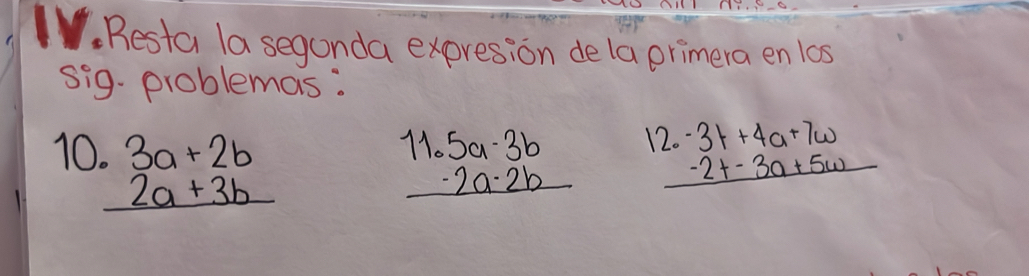 IV. Resta la segunda expresión de la primera en los
sig. problemas:
10. 3a + 2b
2a + 3b
11. 5a - 3b
-2a - 2b
12. -3t + 4a + 7w
-2t - 3a + 5w